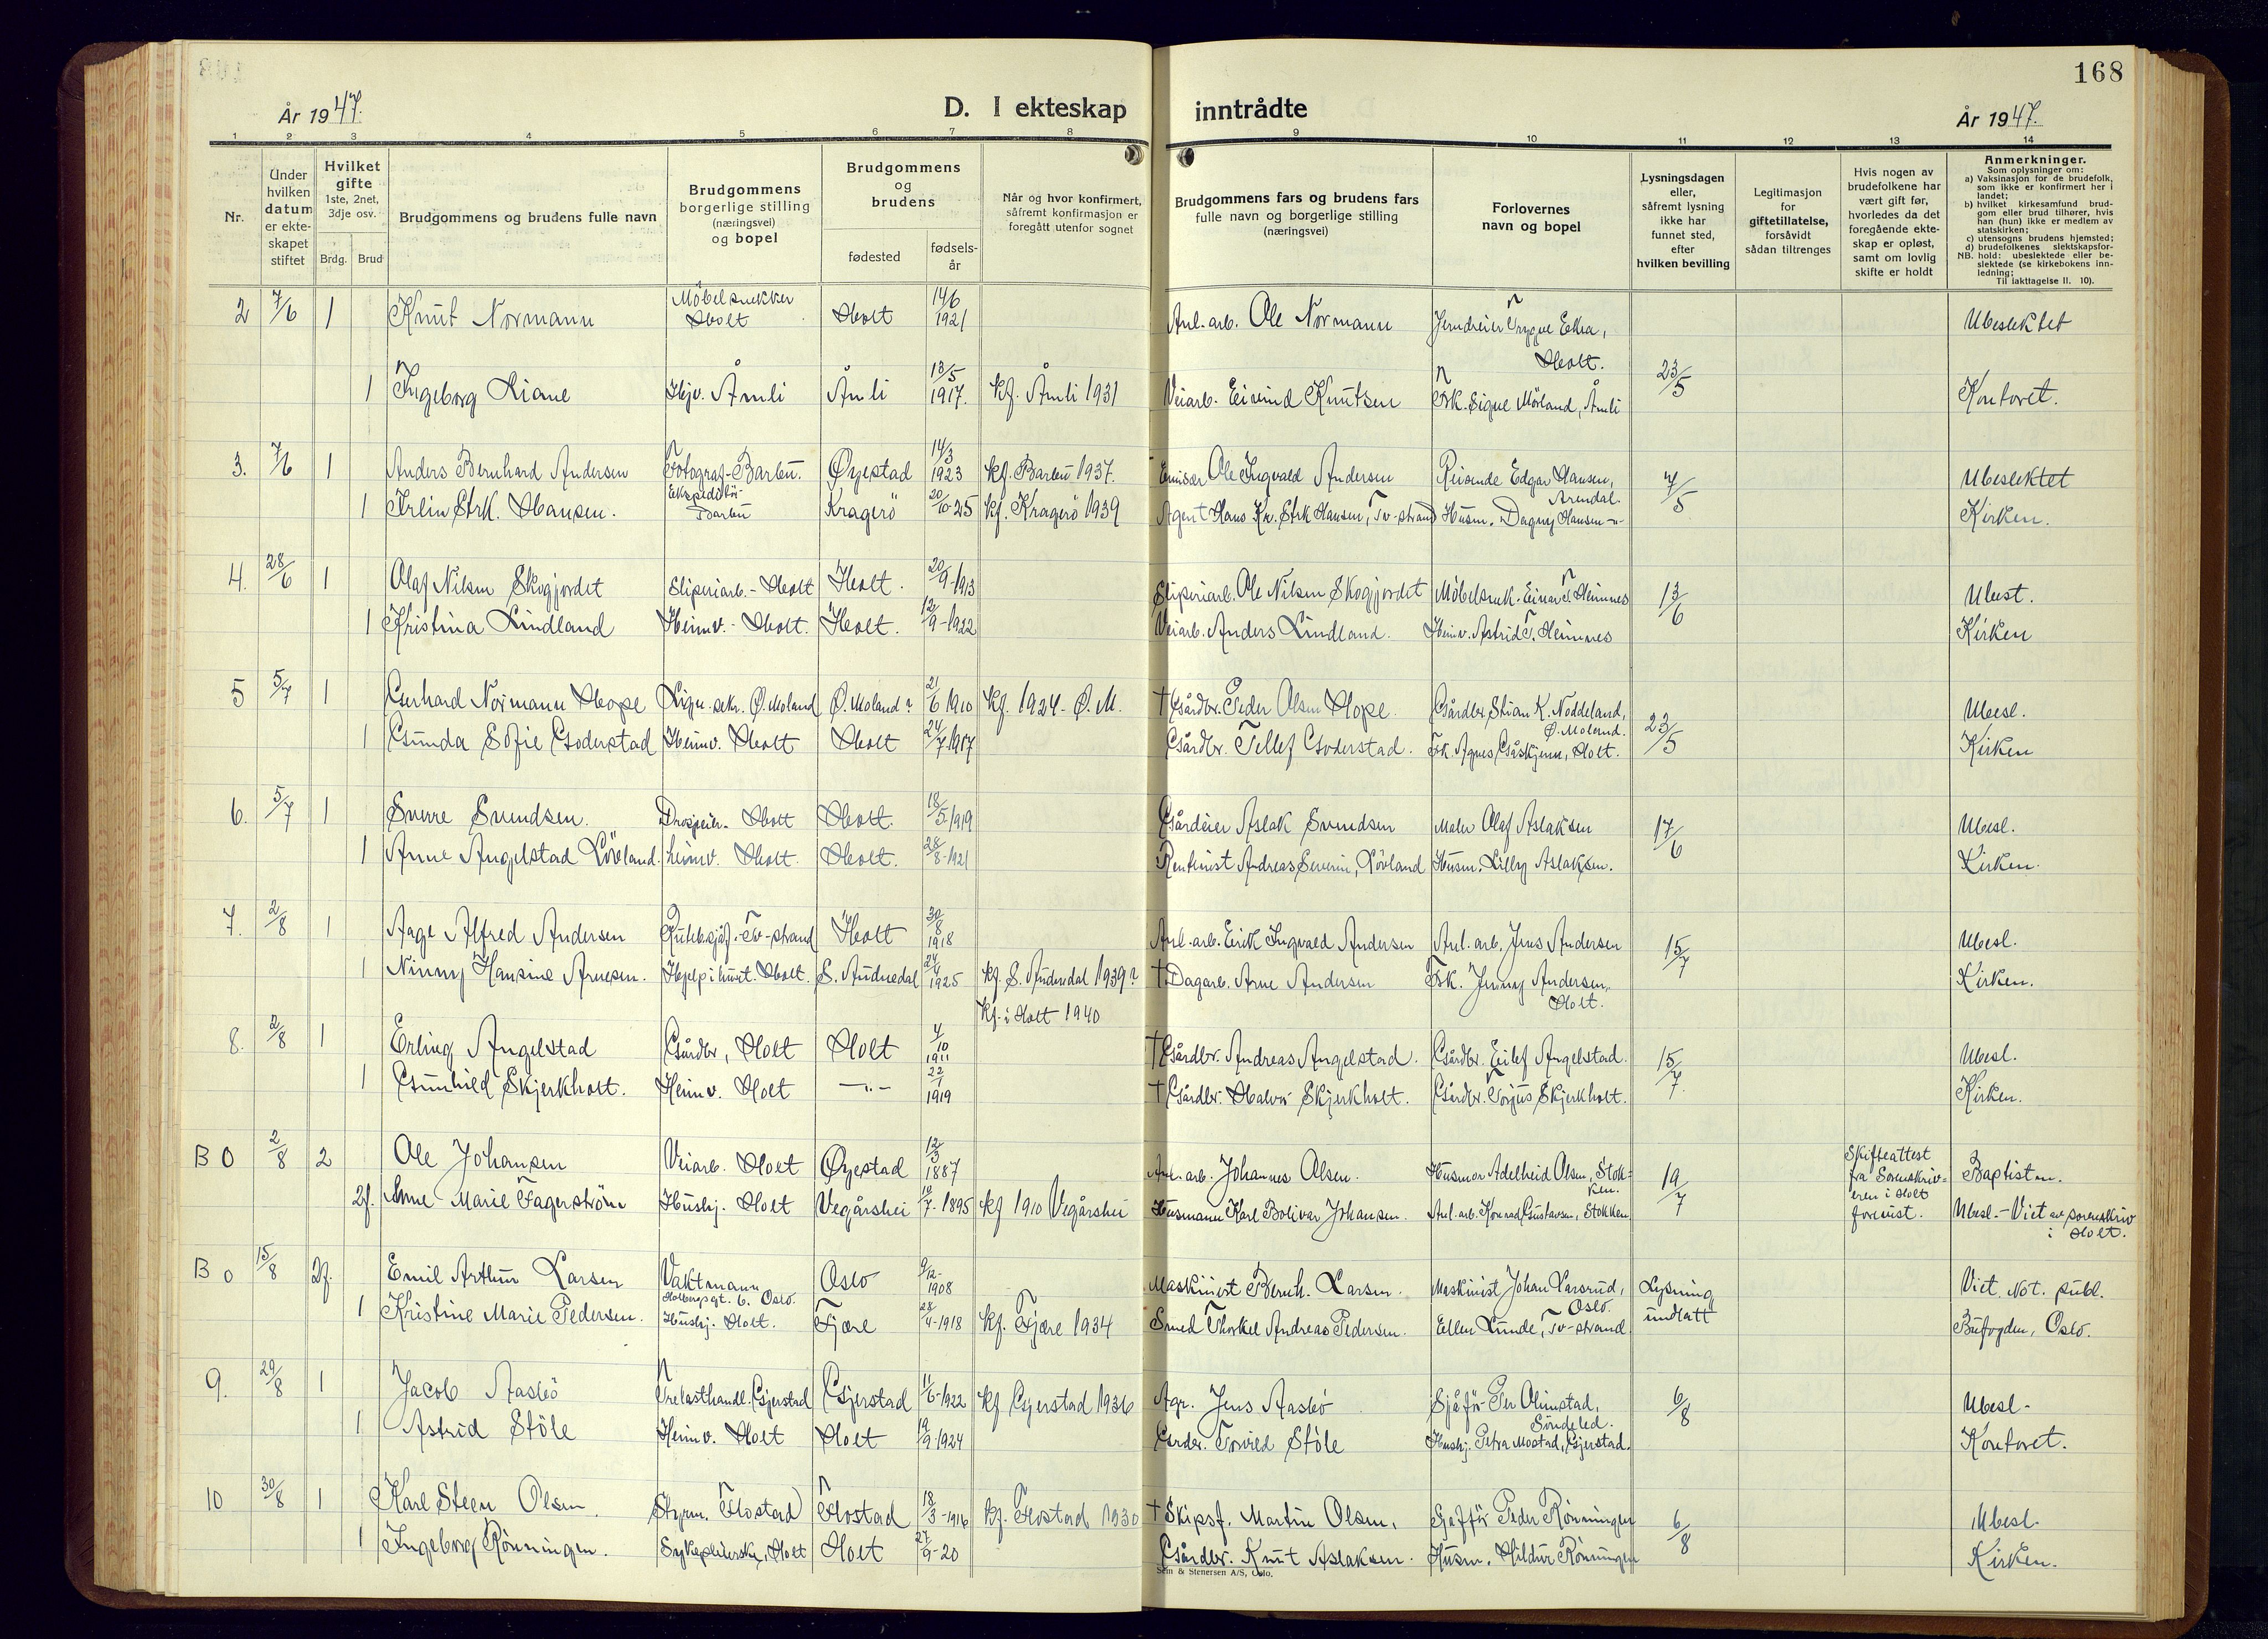 168
År 1947.
D. I ekteskap inntrådte
År 1947.
1 2 3 4 5 6 7 8 9 10 11 12 13 14
Nr.
Under hvilken datum er ekteskapet stiftet
Hvilket gifte 1ste, 2net, 3dje osv.
Brdg. Brud
Brudgommens og brudens fulle navn
Brudgommens borgerlige stilling (næringsvei) og bopel
Brudgommens og brudens
fødested
fødselsår
Når og hvor konfirmert, såfremt konfirmasjon er foregått utenfor sognet
Brudgommens fars og brudens fars fulle navn og borgerlige stilling (næringsvei)
Forlovernes navn og bopel
Lysningsdagen eller, såfremt lysning ikke har funnet sted, efter hvilken bevilling
Legitimasjon for giftetillatelse, forsåvidt sådan tiltrenges
Hvis nogen av brudefolkene har vært gift før, hvorledes da det foregående ekteskap er opløst, samt om lovlig skifte er holdt
Anmerkninger.
Som oplysninger om:
a) Vaksinasjon for de brudefolk, som ikke er konfirmert her i landet;
b) hvilket kirkesamfund brudgom eller brud tilhører, hvis han (hun) ikke er medlem av statskirken;
c) utensogns brudens hjemsted;
d) brudefolkenes slektskapsforhold: ubeslektede eller beslektede (se kirkebokens innledning;
NB. Til iakttagelse II. 10).
2 7/6 1 Knut Normann Möbelsnekker Holt Holt 14/6 1921 Anl.arb. Ole Normann Jerndreier Trygve Ettra, Holt. Ubeslektet
1 Ingeborg Liane Hjv. Åmli Åmli 13/5 1917. Kf. Åmli 1931 Veiarb. Eivind Knutsen Frk. Signe Mörland, Åmli 23/5 Kontoret.
3. 7/6 1 Anders Bernhard Andersen Fotograf-Barbu. Øyestad 14/3 1923 Kf. Barbu 1937. Ole Ingvald Andersen Reisende Edgar Hansen, Arendal. 7/5 Ubeslektet
1 Irlin Strk. Hansen. Ekspeditör Barbu Kragerö 20/10-25 Kf. Kragerö 1939 Agent Hans Kr. Strk Hansen, Tv-strand Husm. Dagny Hansen -"- Kirken.
4. 28/6 1 Olaf Nilsen Skogjordet Sliperiarb.-Holt Holt. 20/9-1913 Sliperiarb. Ole Nilsen Skogjordet Möbelsnek. Einar T. Heimnes 13/6 Ubesl.
1 Kristina Lindland Heimv.-Holt. Holt. 12/9-1922 Veiarb. Anders Lindland. Heimv. Astrid T. Heimnes Kirken
5 5/7 1 Gerhard Normann Hope Lign.sekr. Ø.Moland Ø.Moland? 21/6 1910 Kf. 1924-Ø.M. † Gårdbr. Peder Olsen Hope. Gårdbr. Stian K. Noddeland, Ø.Moland. 23/5 Ubesl.
1 Gunda Sofie Goderstad Heimv. Holt Holt 24/7 1917 Gårdbr. Tellef Goderstad. Frk. Agnes Gåskjenn, Holt. Kirken
6. 5/7 1 Sverre Svendsen. Drosjeeier-Holt Holt. 18/5-1919 Gårdeier Aslak Svendsen Maler Olaf Aslaksen 17/6 Ubesl.
1 Anne Angelstad Lövland. heimv. Holt. Holt. 28/8-1921 Rentenist Andreas Severin Lövland Husm. Lilly Aslaksen. Kirken.
7. 2/8 1 Aage Alfred Andersen Rutebsjåf.-Tv-strand Holt 30/8 1918 Anl.arb. Erik Ingvald Andersen Anl.arb. Jens Andersen 15/7 Ubesl.
1 Ninny Hansine Arnesen. Hjelp i huset. Holt. S. Audnedal 24/4 1925 Kf. S. Audnedal 1939? † Dagarb. Arne Andersen Frk. Jenny Andersen, Holt. Kirken.
Kf. i Holt 1940
8. 2/8 1 Erling Angelstad Gårdbr, Holt Holt 4/10 1911 † Gårdbr. Andreas Angelstad. Gårdbr. Eilef Angelstad. 15/7. Ubesl.
1 Gunhild Skjerkholt. Heimv. Holt -"- 22/1 1919 † Gårdbr. Halvor Skjerkholt. Gårdbr. Torjus Skjerkholt. Kirken.
B O 2/8 2 Ole Johansen Veiarb. Holt Øyestad 12/3 1887 Anl.arb. Johannes Olsen. Husmor Adelheid Olsen, Stokken. 19/7 Skifteattest fra Sorenskriveren i Holt forevist. Baptist m.
2f. Anne Marie Fagerström Hushj. Holt Vegårshei 12/7-1895 Kf 1910 Vegårshei Husmann Karl Bolivar Johansen. Anl.arb. Konrad Gustavsen, Stokken Ubesl.-Viet av sorenskriv i Holt.
B o 15/8 2f. Emil Arthur Larsen Vaktmann Holbergsgt. 6. Oslo. Oslo 9/12-1908 Maskinist Bernh. Larsen. Maskinist Johan Larsrud, Oslo. Lysning undlatt Viet Not. publ.
1 Kristine Marie Pedersen. Hushj. Holt. Fjære 28/4-1918 Kf. Fjære 1934 Smed Thorkel Andreas Pedersen. Ellen Lunde, Tv-strand. Bufogden, Oslo.
9. 29/8 1 Jacob Aasbö Trelasthandl. Gjerstad Gjerstad 11/6-1922 Kf Gjerstad 1936 Agr. Jens Aasbö Sjåför Per Olimstad, Söndeled. 6/8 Ubesl-
1 Astrid Stöle Heimv. Holt Holt 19/9-1924 Gardbr. Torvild Stöle Hushj. Petra Mostad, Gjerstad. Kontoret.
10 30/8 1 Karl Steen Olsen. Styrm. Flostad Flostad 18/3-1916 Kf. Flostad 1930 † Skipsf. Martin Olsen, Sjåfför Peder Rönningen 6/8 Ubesl.
1 Ingeborg Rönningen. Sykepleierske, Holt Holt 27/9-20 Gårdbr. Knut Aslaksen. Husm. Hildur Rönningen Kirken.
Sem & Stenersen A/S, Oslo.